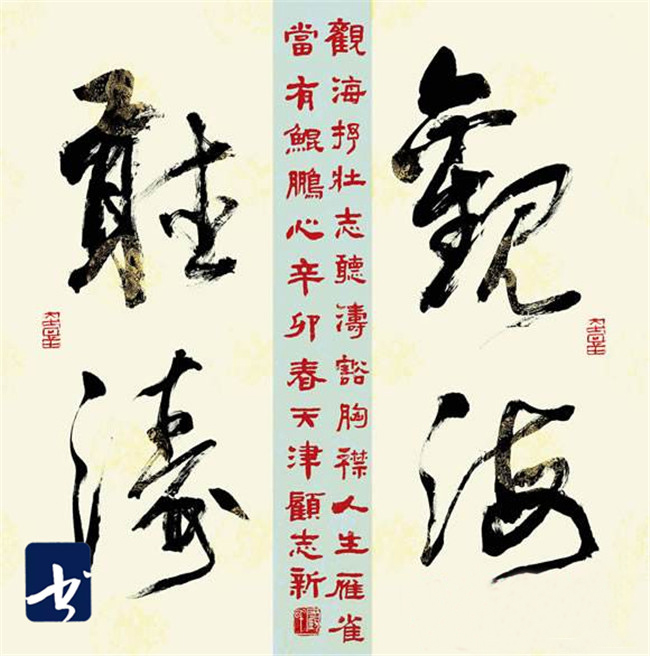 觀海
觀海抒壯志聽濤豁胸襟人生雁雀
當有鯤鵬心辛卯春天津顧志新
聽濤
书